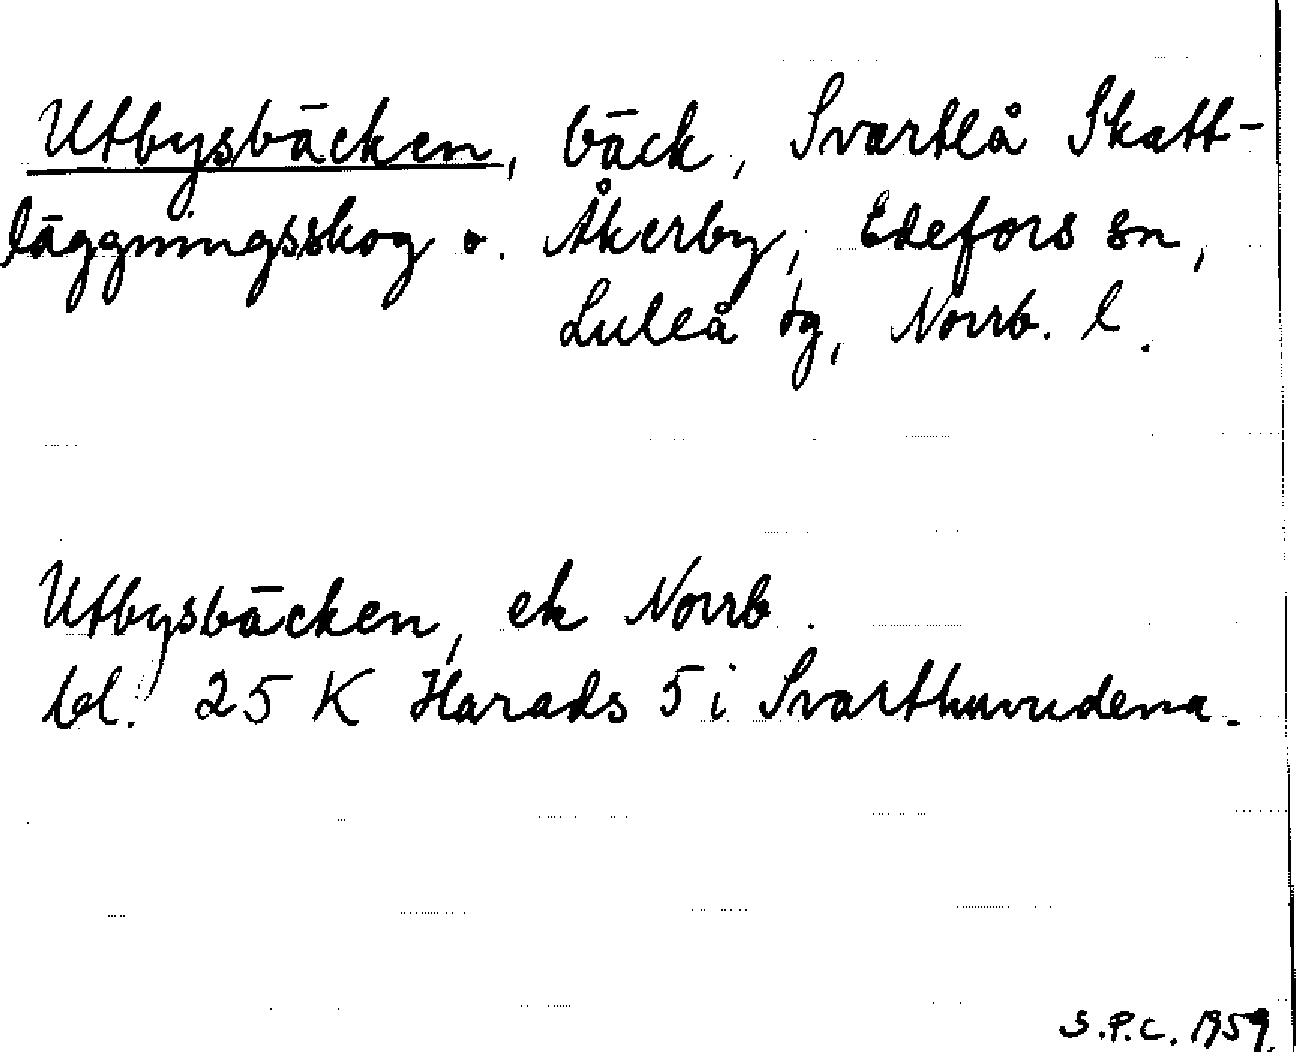 Utbysbäcken, bäck, Svartlå Skatt-
läggningsskog o. Åkerby, Edefors sn,
Luleå tg, Norrb. l.
Utbysbäcken, ek Norrb.
bl. 25 K Harads 5 i Svarthuvudena.
S.P.C. 1959.